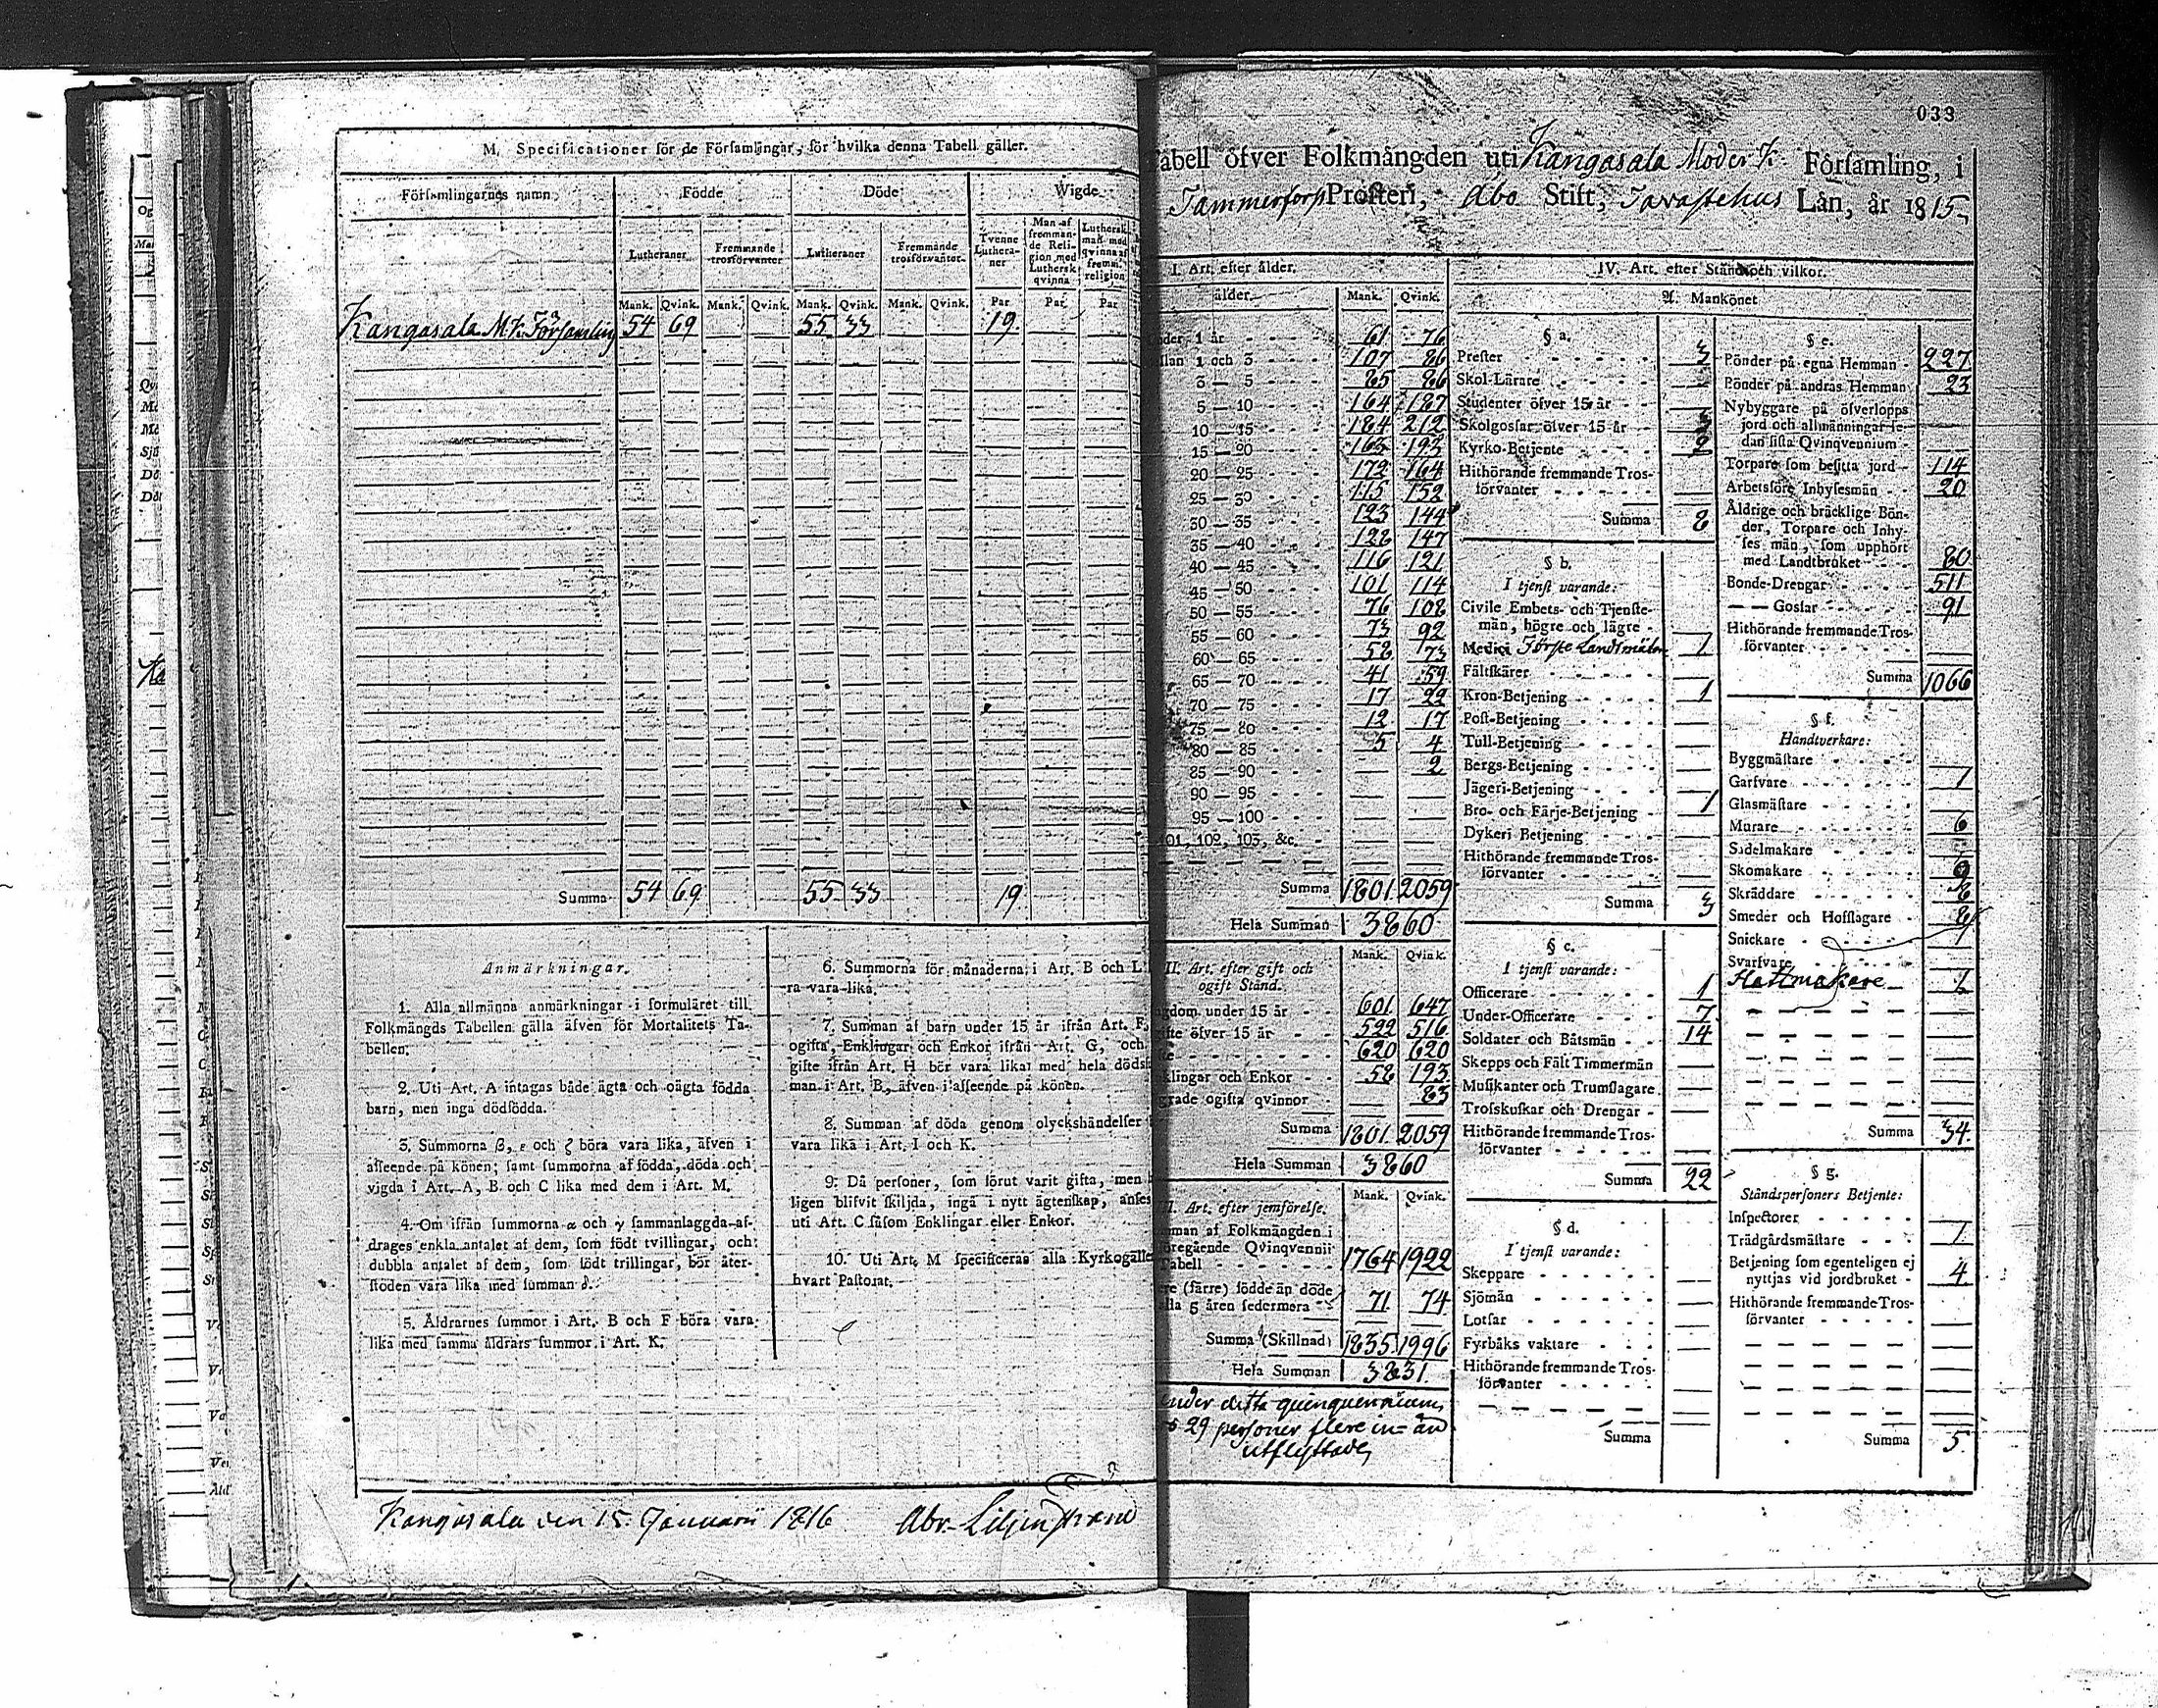 M. Specificationer för de Församlingar, för hvilka denna Tabell gäller.
Församlingarnes namn. Födde Döde Wigde
Lutheraner Fremmande trosförvanter Lutheraner Fremmande trosförvanter Tvenne Lutheraner Man af fremmande Religion med Luthersk qvinna Luthersk man med qvinna af fremm. religion
Mank. Qvink. Mank. Qvink. Mank. Qvink. Mank. Qvink. Par Par Par
Kangasala M. K. Församling 54 69 55 33 19
Summa 54 69 55 33 19
Anmärkningar.
1. Alla allmänna anmärkningar i formuläret till
Folkmängds Tabellen gälla äfven för Mortalitets Ta-
bellen.
2. Uti Art. A intagas både ägta och oägta födda
barn, men inga dödfödda.
3. Summorna β, ε och ζ böra vara lika, äfven i
afseende på könen; samt summorna af födda, döda och
vigda i Art. A, B och C lika med dem i Art. M.
4. Om ifrån summorna α och γ sammanlaggda af-
drages enkla antalet af dem, som födt tvillingar, och
dubbla antalet af dem, som födt trillingar, bör åter-
stoden vara lika med summan δ.
5. Åldrarnes summor i Art. B och F böra vara
lika med samma åldrars summor i Art. K.
6. Summorna för månaderna i Art. B och L
ra vara lika.
7. Summan af barn under 15 år ifrån Art. F,
ogifta, Enklingar och Enkor ifrån Art. G, och
gifte ifrån Art. H bör vara lika med hela döds
man i Art. B, äfven i afseende på könen.
8. Summan af döda genom olyckshändelser
vara lika i Art. I och K.
9. Då personer, som förut varit gifta, men
ligen blifvit skiljda, ingå i nytt ägtenskap, anses
uti Art. C såsom Enklingar eller Enkor.
10. Uti Art. M specificeras alla Kyrkogälle
hvart Pastorat.
Kangasala den 15 Januarii 1816 Abr. Liljenstrand
033
Tabell öfver Folkmängden uti Kangasala Moder K. Församling, i
Tammerfors Prosteri, Åbo Stift, Tavastehus Län, år 1815
I. Art. efter ålder.
ålder Mank. Qvink.
nder 1 år 61 76
llan 1 och 3 107 86
3 — 5 85 86
5 — 10 164 187
10 — 15 184 212
15 — 20 163 193
20 — 25 172 164
25 — 30 115 152
30 — 35 123 144
35 — 40 128 147
40 — 45 116 121
45 — 50 101 114
50 — 55 76 108
55 — 60 73 92
60 — 65 58 73
65 — 70 41 59
70 — 75 17 22
75 — 80 12 17
80 — 85 5 4
85 — 90 2
90 — 95
95 — 100
101, 102, 103, &c.
Summa 1801 2059
Hela Summan 3860
II. Art. efter gift och ogift Stånd. Mank. Qvink.
gdom under 15 år 601 647
fte öfver 15 år 522 516
te 620 620
klingar och Enkor 58 193
grade ogifta qvinnor 83
Summa 1801 2059
Hela Summan 3860
Art. efter jemförelse. Mank. Qvink.
man af Folkmängden i
öregående Qvinqvennii
Tabell 1764 1922
re (färre) födde än döde
lla 5 åren sedermera 71 74
Summa (Skillnad) 1835 1996
Hela Summan 3831
under detta quinquennium
29 personer flere in- än
utflyttade
IV. Art. efter Stånd och vilkor.
A. Mankönet
§ a.
Prester 3
Skol-Lärare
Studenter öfver 15 år
Skolgossar öfver 15 år 3
Kyrko-Betjente 2
Hithörande fremmande Tros-
förvanter
Summa 8
§ b.
I tjenst varande:
Civile Embets- och Tjenste-
män, högre och lägre
Medici Förste Landtmätare 1
Fältskärer
Kron-Betjening 1
Post-Betjening
Tull-Betjening
Bergs-Betjening
Jägeri-Betjening
Bro- och Färje-Betjening 1
Dykeri Betjening
Hithörande fremmande Tros-
förvanter
Summa 3
§ c.
I tjenst varande:
Officerare 1
Under-Officerare 7
Soldater och Båtsmän 14
Skepps och Fält Timmermän
Musikanter och Trumslagare
Trosskuskar och Drengar
Hithörande fremmande Tros-
förvanter
Summa 22
§ d.
I tjenst varande:
Skeppare
Sjömän
Lotsar
Fyrbåks vaktare
Hithörande fremmande Tros-
förvanter
Summa
§ e.
Bönder på egna Hemman 227
Bönder på andras Hemman 23
Nybyggare på öfverlopps
jord och allmänningar se-
dan sista Qvinqvennium
Torpare som besitta jord 114
Arbetsföre Inhysesmän 20
Åldrige och bräcklige Bön-
der, Torpare och Inhy-
ses män, som upphört
med Landtbruket 80
Bonde-Drengar 511
— — Gossar 91
Hithörande fremmande Tros-
förvanter
Summa 1066
§ f.
Handtverkare:
Byggmästare
Garfvare 1
Glasmästare
Murare 6
Sadelmakare
Skomakare 9
Skräddare 8
Smeder och Hofslagare 8
Snickare 1
Svarfvare
Hattmakare 1
Summa 34
§ g.
Ståndspersoners Betjente:
Inspectorer
Trädgårdsmästare 1
Betjening som egenteligen ej
nyttjas vid jordbruket 4
Hithörande fremmande Tros-
förvanter
Summa 5